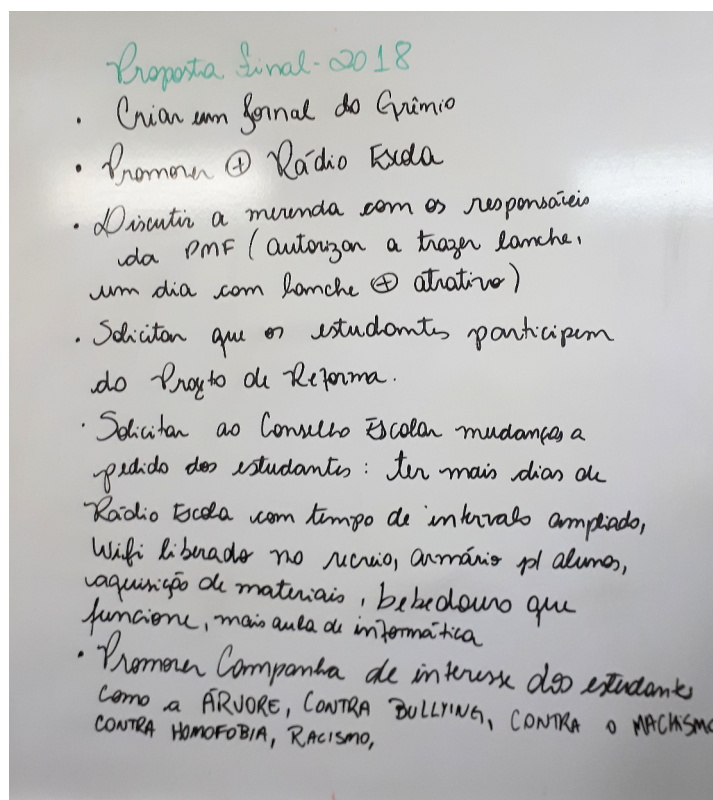 Proposta Final - 2018
• Criar um Jornal do Grêmio
• Promover ⊕ Rádio Escola
• Discutir a merenda com os responsáveis
da PMF (autorizar a trazer lanche,
um dia com lanche ⊕ atrativo)
• Solicitar que os estudantes participem
do Projeto de Reforma.
• Solicitar ao Conselho Escolar mudanças a
pedido dos estudantes: ter mais dias de
Rádio Escola com tempo de intervalo ampliado,
Wifi liberado no recreio, armário p/ alunos,
aquisição de materiais, bebedouro que
funcione, mais aula de informática
• Promover Campanha de interesse dos estudantes
como a ÁRVORE, CONTRA BULLYING, CONTRA O MACHISMO
CONTRA HOMOFOBIA, RACISMO,